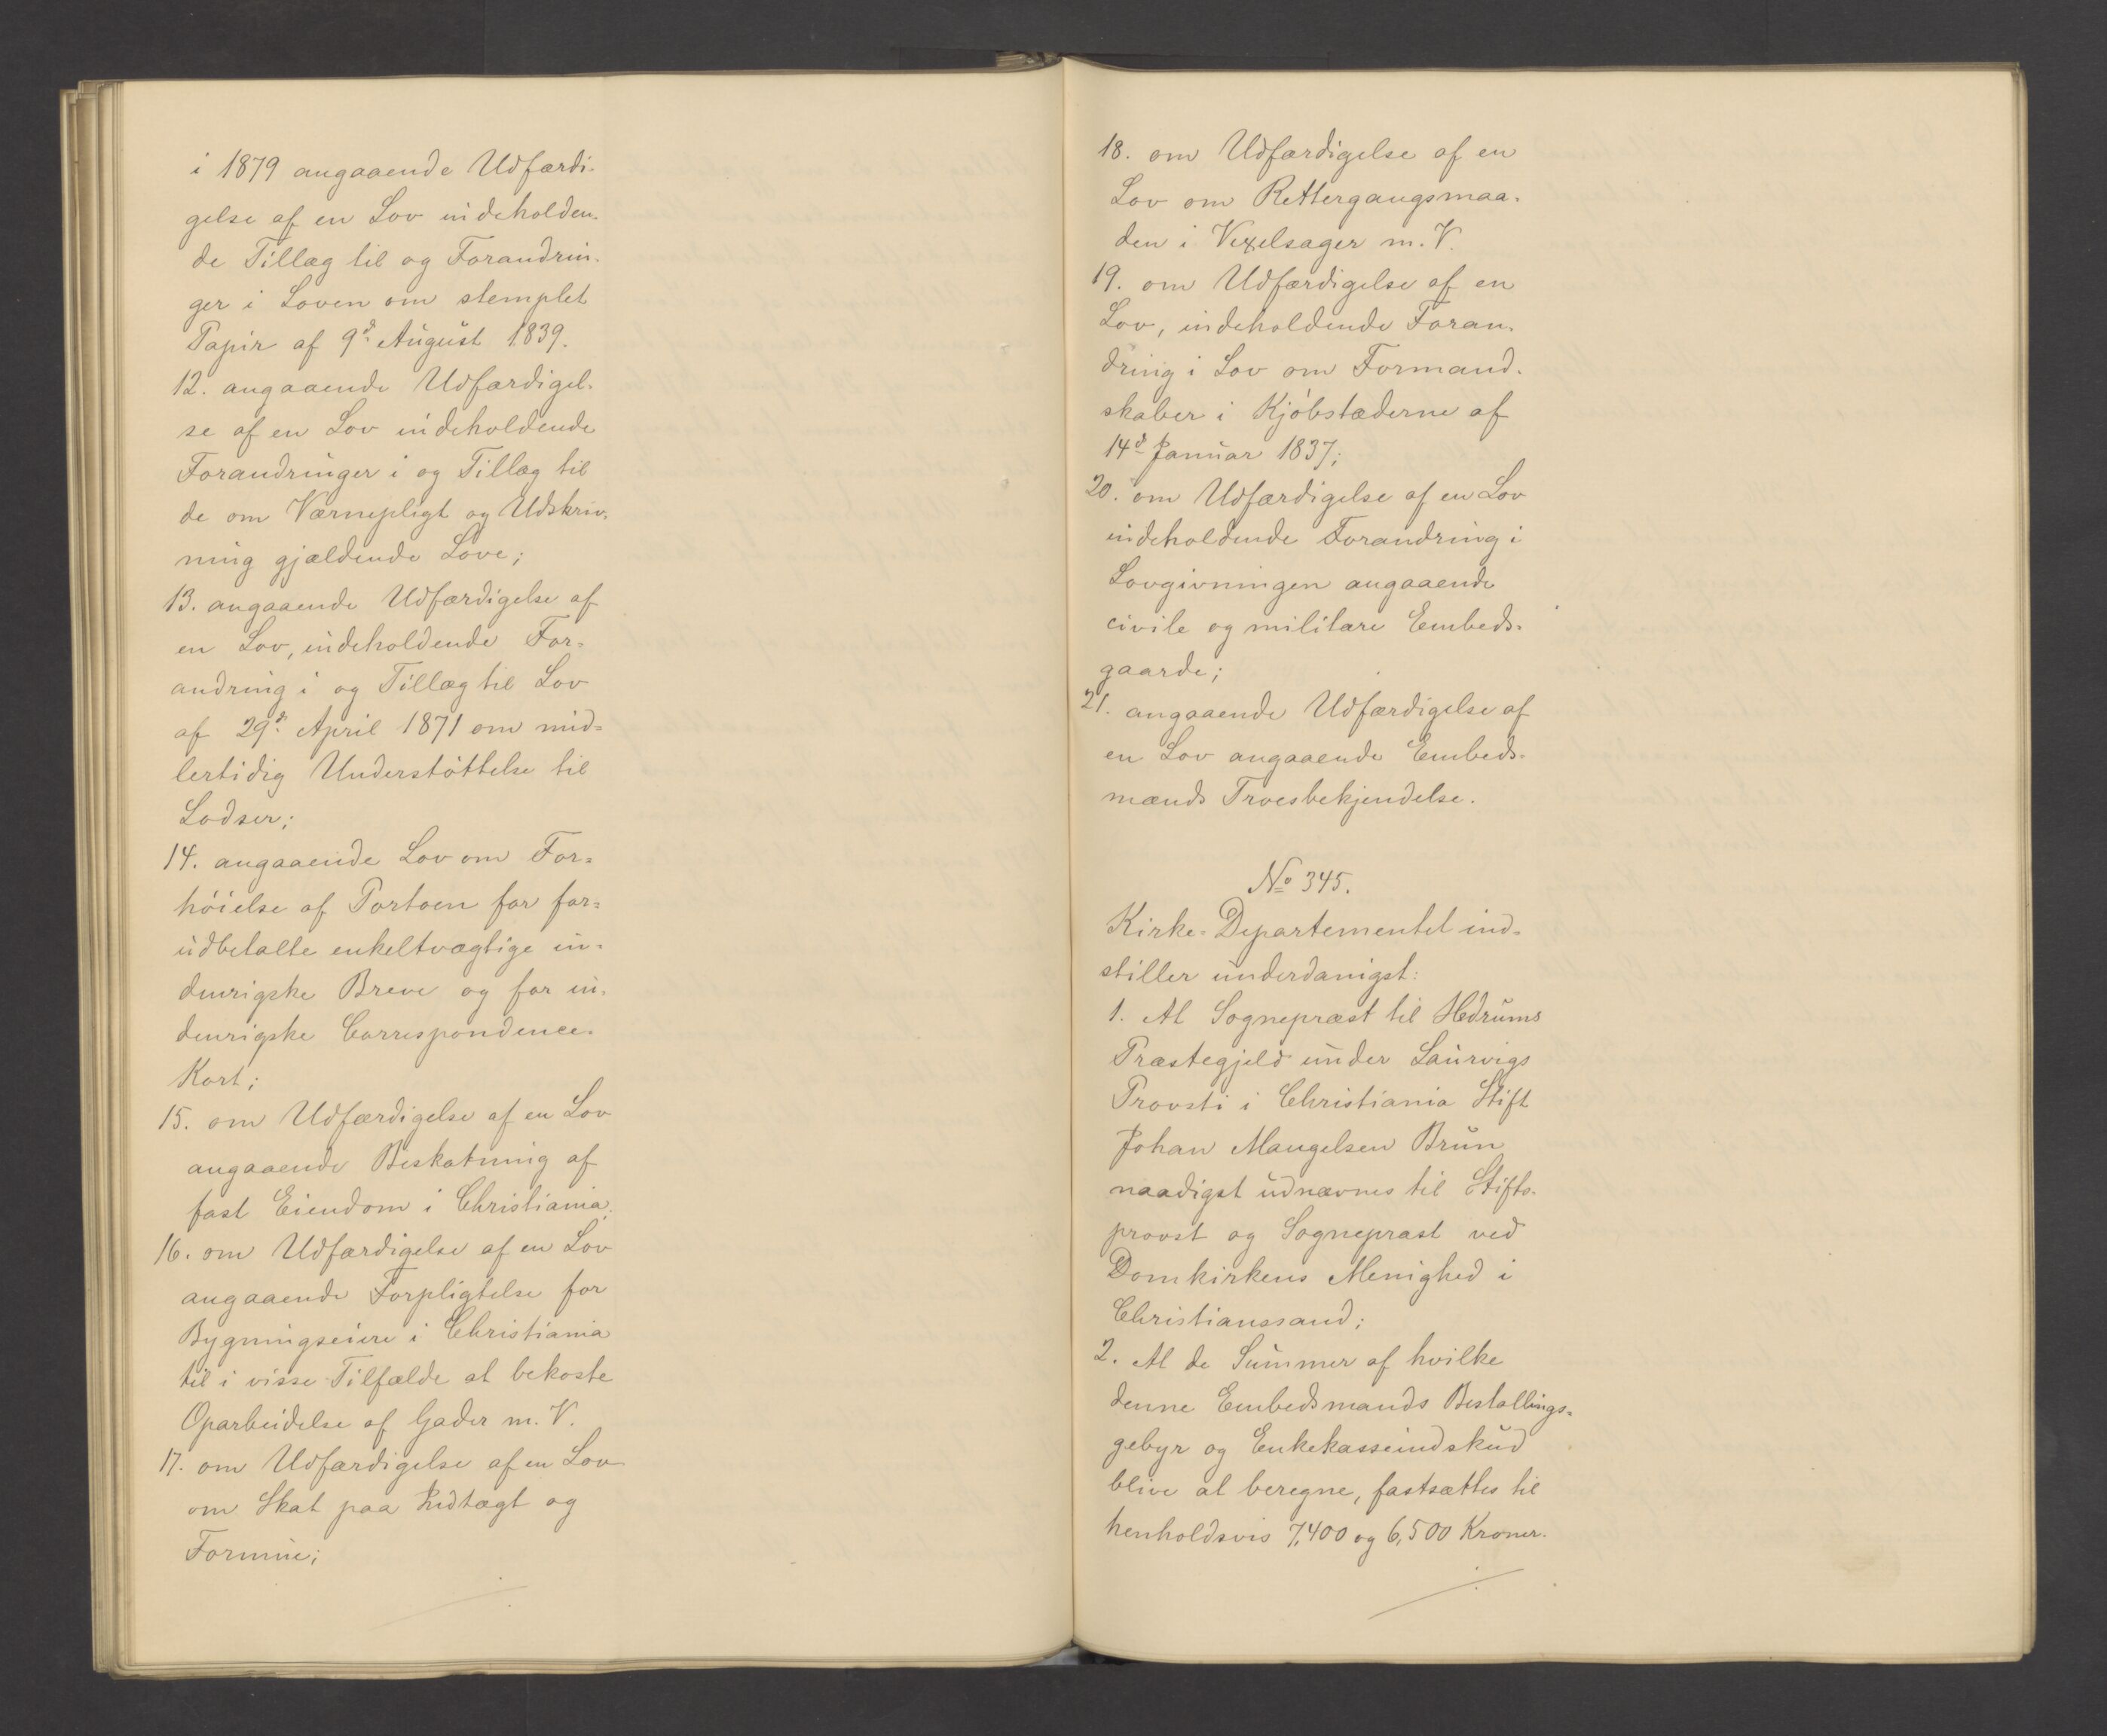 i 1879 angaaende Udfærdi-
gelse af en Lov indeholden-
de Tillæg til og Forandrin-
ger i Loven om stemplet
Papir af 9d. August 1839.
12. angaaende Udfærdigel-
se af en Lov indeholdende
Forandringer i og Tillæg til
de om Værnepligt og Udskriv-
ning gjældende Love;
13. angaaende Udfærdigelse af
en Lov, indeholdende For=
andring i og Tillæg til Lov
af 29d. April 1871 om mid=
lertidig Understøttelse til
Lodser;
14. angaaende Lov om For=
høielse af Portoen for for=
udbetalte enkeltvægtige in=
denrigske Breve og for in-
denrigske Correspondence-
Kort;
15. om Udfærdigelse af en Lov
angaaende Beskatning af
fast Eiendom i Christiania;
16. om Udfærdigelse af en Lov
angaaende Forpligtelse for
Bygningseiere i Christiania
til i visse Tilfælde at bekoste
Oparbeidelse af Gader m. V.
17. om Udfærdigelse af en Lov
om Skat paa Indtægt og
Formue;
18. om Udfærdigelse af en
Lov om Rettergangsmaa-
den i Vexelsager m. V.
19. om Udfærdigelse af en
Lov, indeholdende Foran-
dring i Lov om Formand-
skaber i Kjøbstæderne af
14d Januar 1837;
20. om Udfærdigelse af en Lov
indeholdende Forandring i
Lovgivningen angaaende
civile og militære Embeds-
gaarde;
21. angaaende Udfærdigelse af
en Lov angaaende Embeds-
mænds Troesbekjendelse.
No 345.
Kirke=Departementet ind-
stiller underdanigst:
1. At Sognepræst til Hedrums
Præstegjeld under Laurvigs
Provsti i Christiania Stift
Johan Mangelsen Brun
naadigst udnævnes til Stifts-
provst og Sognepræst ved
Domkirkens Menighed i
Christianssand;
2. At de Summer af hvilke
denne Embedsmands Bestallings=
gebyr og Enkekasseindskud
blive at beregne, fastsættes til
henholdsvis 7,400 og 6,500 Kroner.